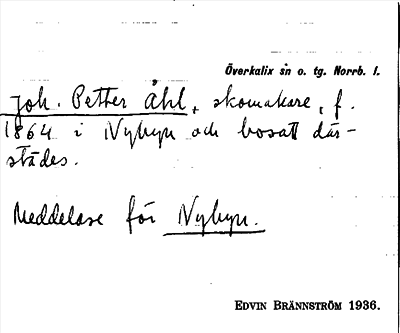 Överkalix sn o. tg. Norrb. l.
Joh. Petter Åhl, skomakare, f.
1864 i Nybyn och bosatt där-
städes.
Meddelare för Nybyn.
EDVIN BRÄNNSTRÖM 1936.